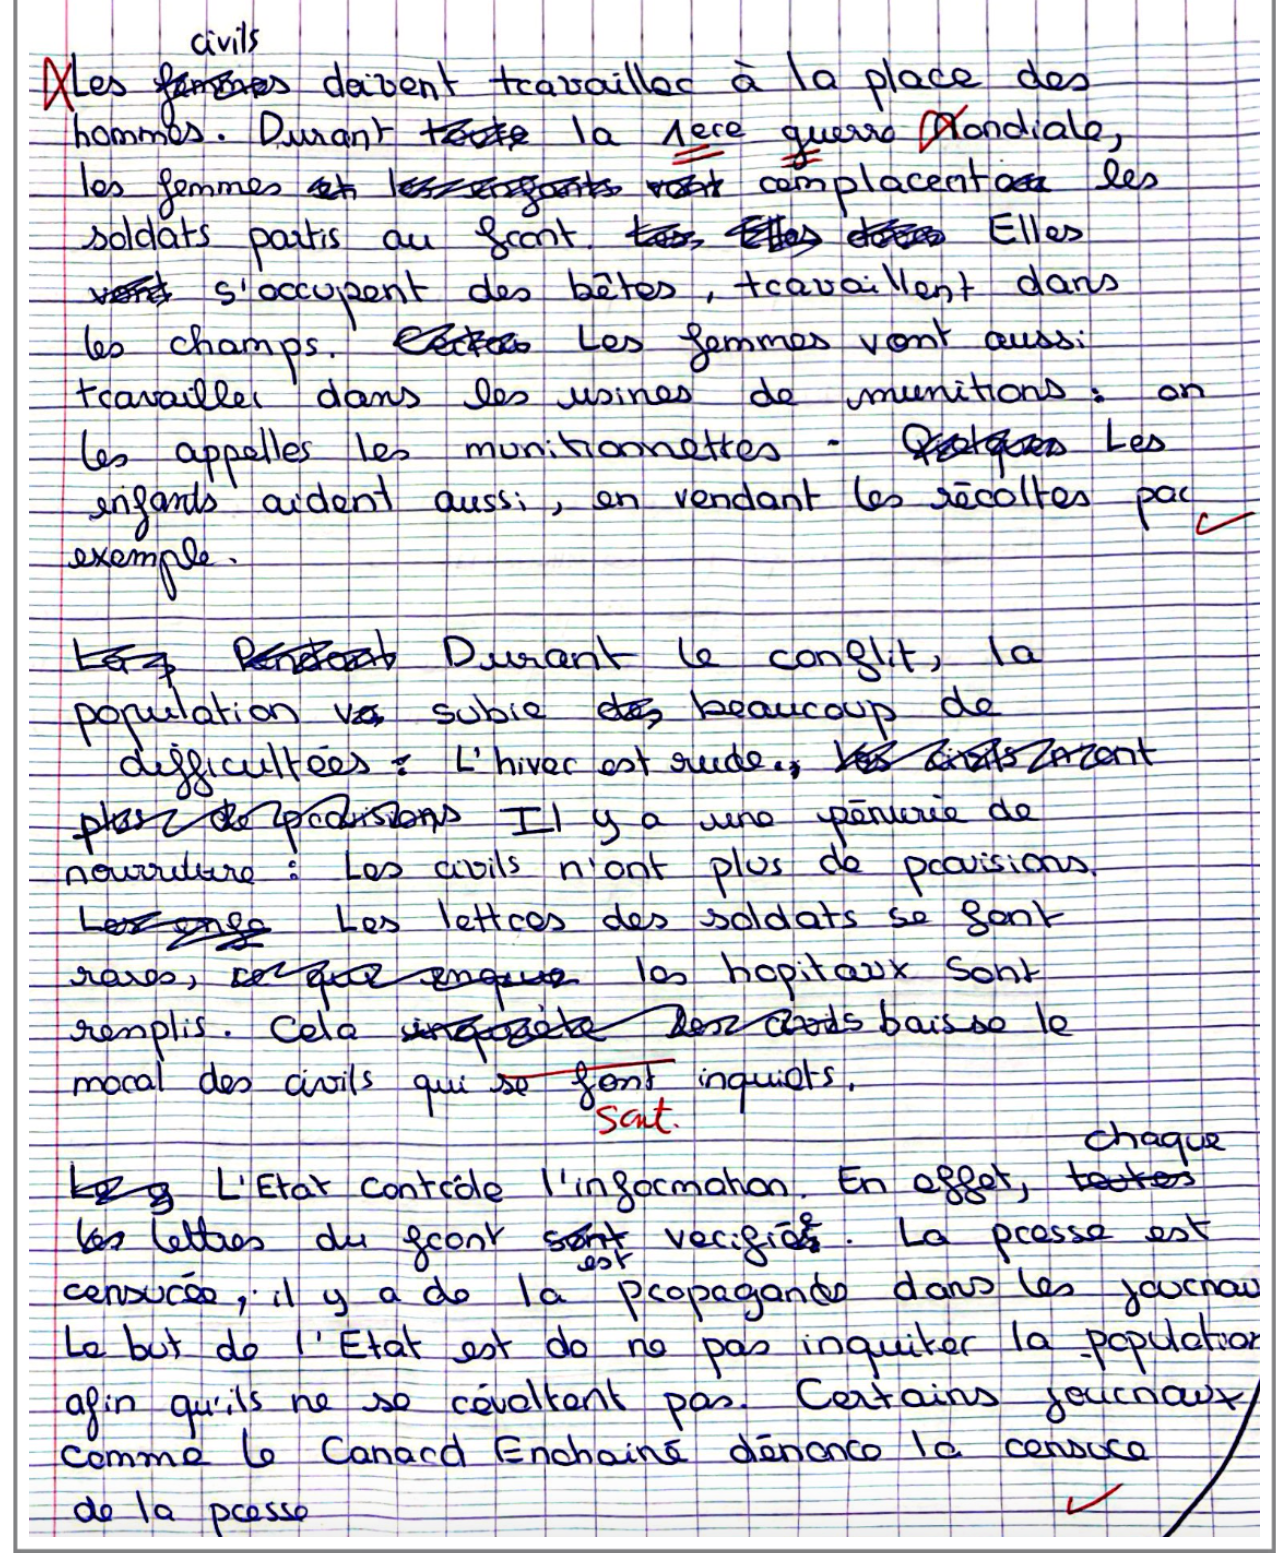 civils
Les femmes doivent travailler à la place des
hommes. Durant toute la 1ere guerre Mondiale,
les femmes et les enfants vont remplacent les
soldats partis au front. Elles Elles
vont s'occupent des bêtes, travaillent dans
les champs. Les femmes vont aussi
travailler dans les usines de munitions : on
les appelles les munitionnettes. Quelques Les
enfants aident aussi, en vendant les récoltes par
exemple.
Pendant Durant le conflit, la
population va subie des beaucoup de
difficultées : L'hiver est rude., les civils n'ont
plus de provisions Il y a une pénurie de
nourriture : Les civils n'ont plus de provisions.
Les enfa Les lettres des soldats se font
rares, ce que les hopitaux sont
remplis. Cela inquiète les civils baisse le
moral des civils qui se font inquiets.
sont.
chaque
L'Etat contrôle l'information. En effet, toutes
les lettres du front sont verifiée. La presse est
est
censurée, il y a de la propagande dans les journau
Le but de l'Etat est de ne pas inquiter la population
afin qu'ils ne se révoltent pas. Certains journaux
comme le Canard Enchainé dénonce la censure
de la presse